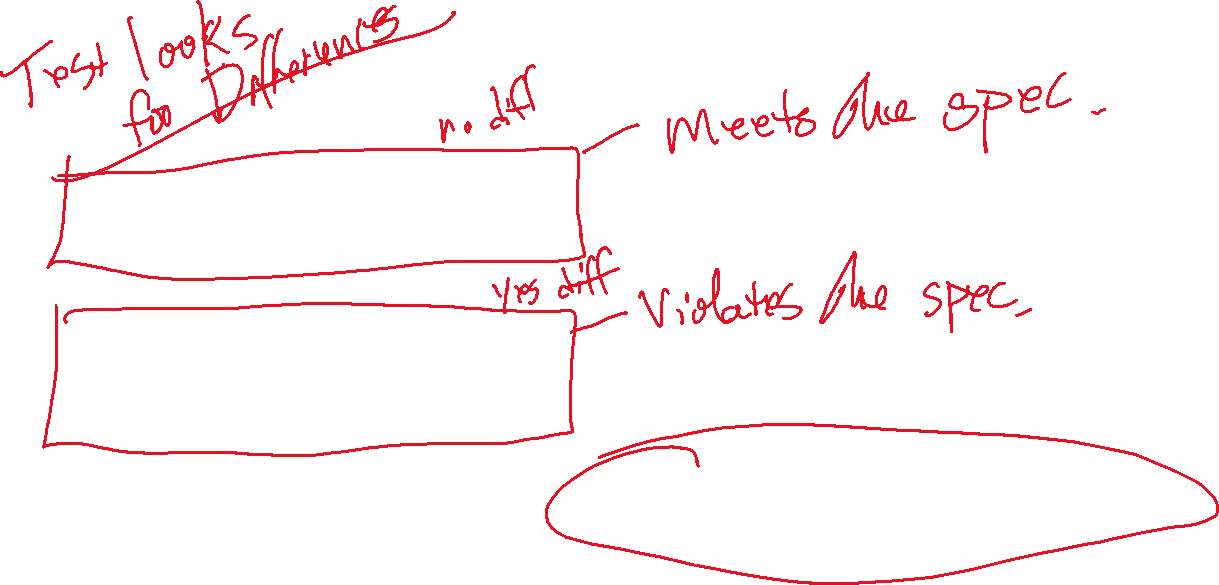 Test looks
for Differences
no diff
meets the spec.
yes diff
Violates the spec.